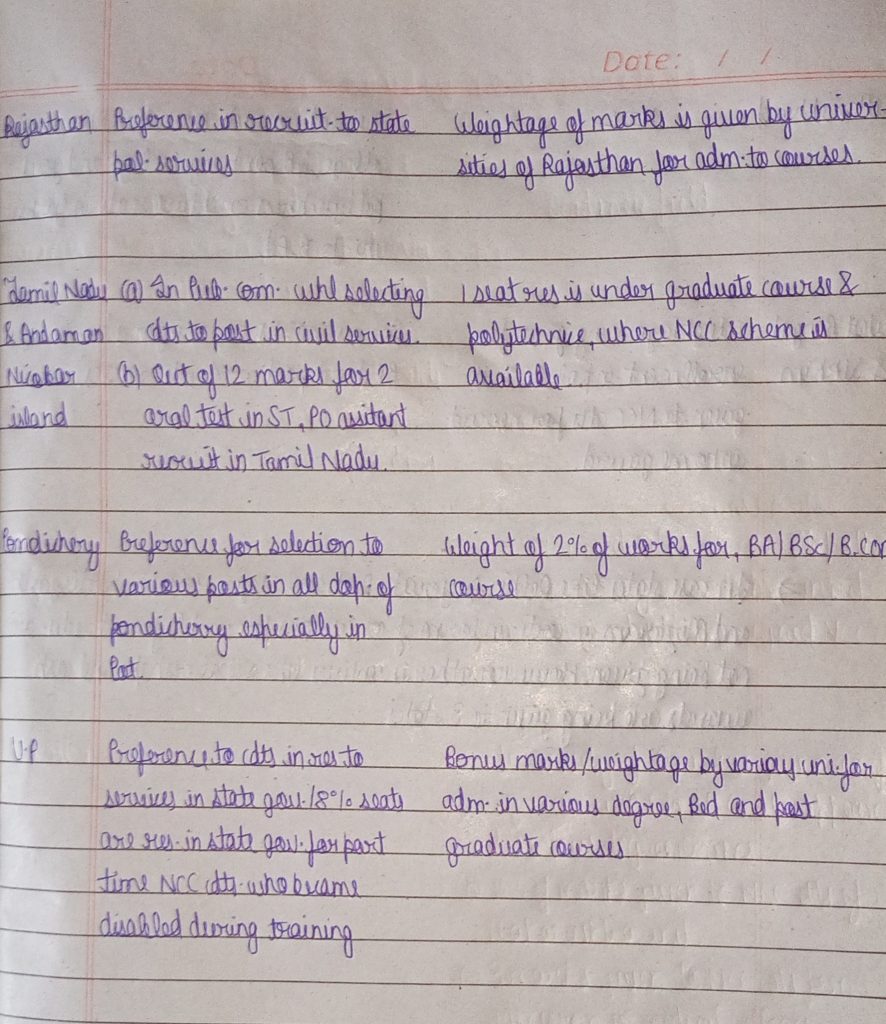 Date: / /
Rajasthan Preference in recruit. to state Weightage of marks is given by univer-
pol. services sities of Rajasthan for adm. to courses.
Tamil Nadu (a) In Pub. com. whl selecting 1 seat res is under graduate course &
& Andaman cdts to post in civil services. polytechnic, where NCC scheme is
Nicobar (b) Out of 12 marks for 2 available
island oral test in ST, PO assitant
recruit in Tamil Nadu.
Pondichery Preference for selection to Weight of 2% of marks for, BA/BSc/B.Com
various posts in all dep. of course
pondicherry especially in
U.P Preference to cdts in res to Bonus marks/weightage by variou uni. for
services in state gov. 18% seats adm. in various degree, Bed and post
are res. in state gov. for part graduate courses
time NCC cdts. who became
disabled during training